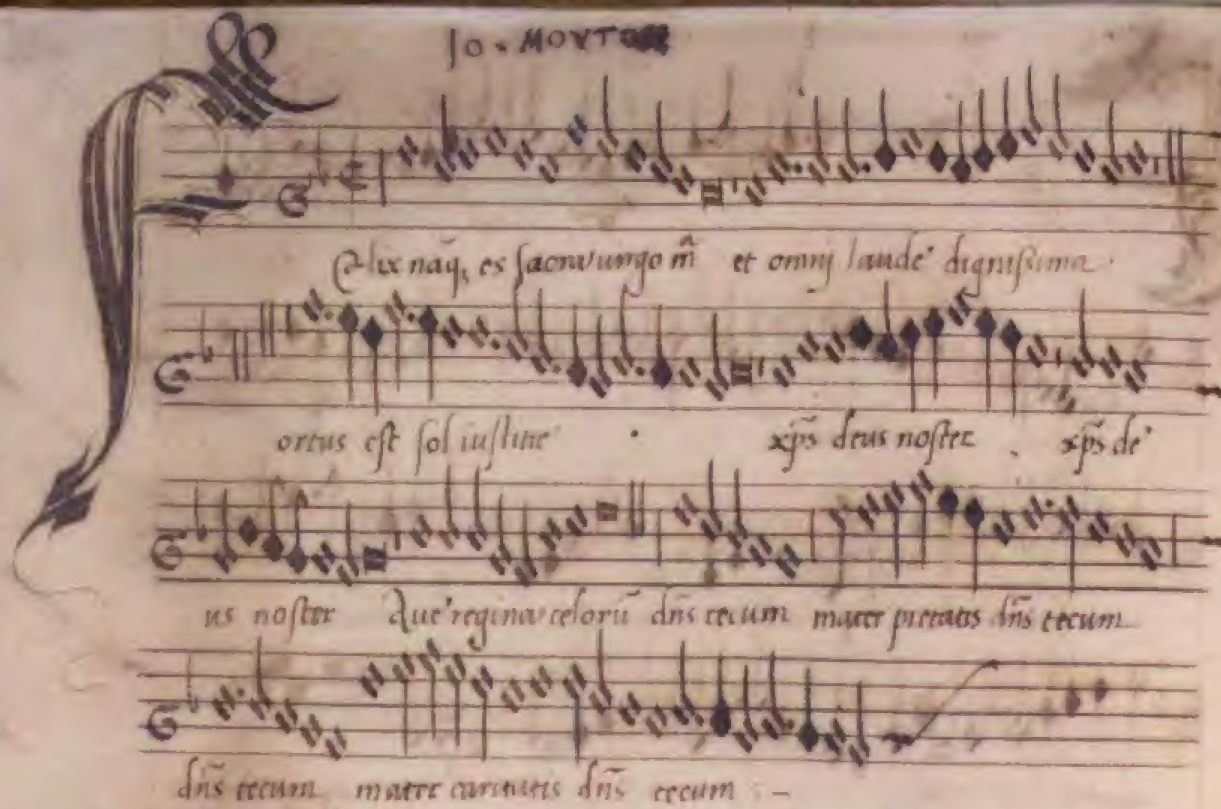 Jo. MOVTON
Felix nāq, es sacra uirgo m̄ et omnj laude dignissima
ortus est sol iustitie xp̄s deus noster xp̄s de
us noster Aue regina celorū dn̄s tecum mater pietatis dn̄s tecum
dn̄s tecum mater caritatis dn̄s tecum